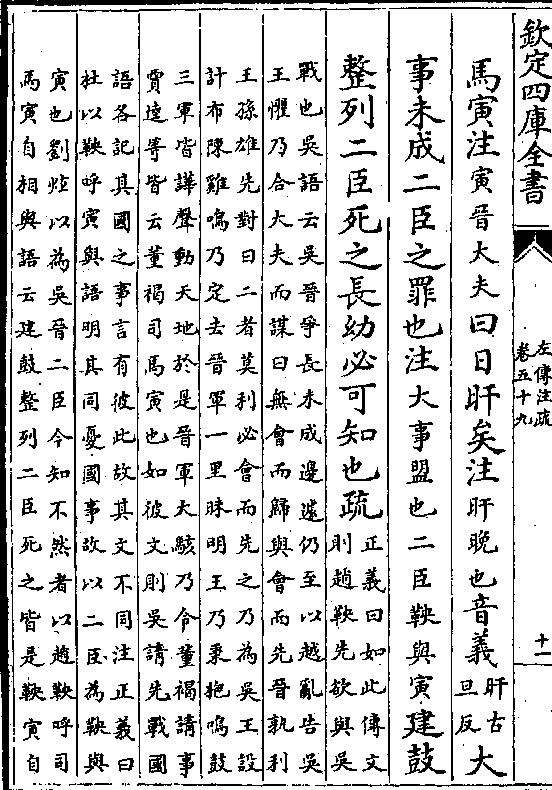 欽定四庫全書
左傳注疏
卷五十九
十一
馬寅注寅晉大夫曰日旰矣注旰晚也音義旰古旦反大
事未成二臣之罪也注大事盟也二臣鞅與寅建鼓
整列二臣死之長幼必可知也疏正義曰如此傳文則趙鞅先欲與吳
戰也吳語云吳晉爭長未成邊遽仍至以越亂告吳
王懼乃合大夫而謀曰無會而歸與會而先晉孰利
王孫雄先對曰二者莫利必會而先之乃為吳王設
計布陳雞鳴乃定去晉軍一里昧明王乃秉抱鳴鼓
三軍皆譁聲動天地於是晉軍大駭乃令董褐請事
賈逵等皆云董褐司馬寅也如彼文則吳請先戰國
語各記其國之事言有彼此故其文不同注正義曰
杜以鞅呼寅與語明其同憂國事故以二臣為鞅與
寅也劉炫以為吳晉二臣今知不然者以趙鞅呼司
馬寅自相與語云建鼓整列二臣死之皆是鞅寅自